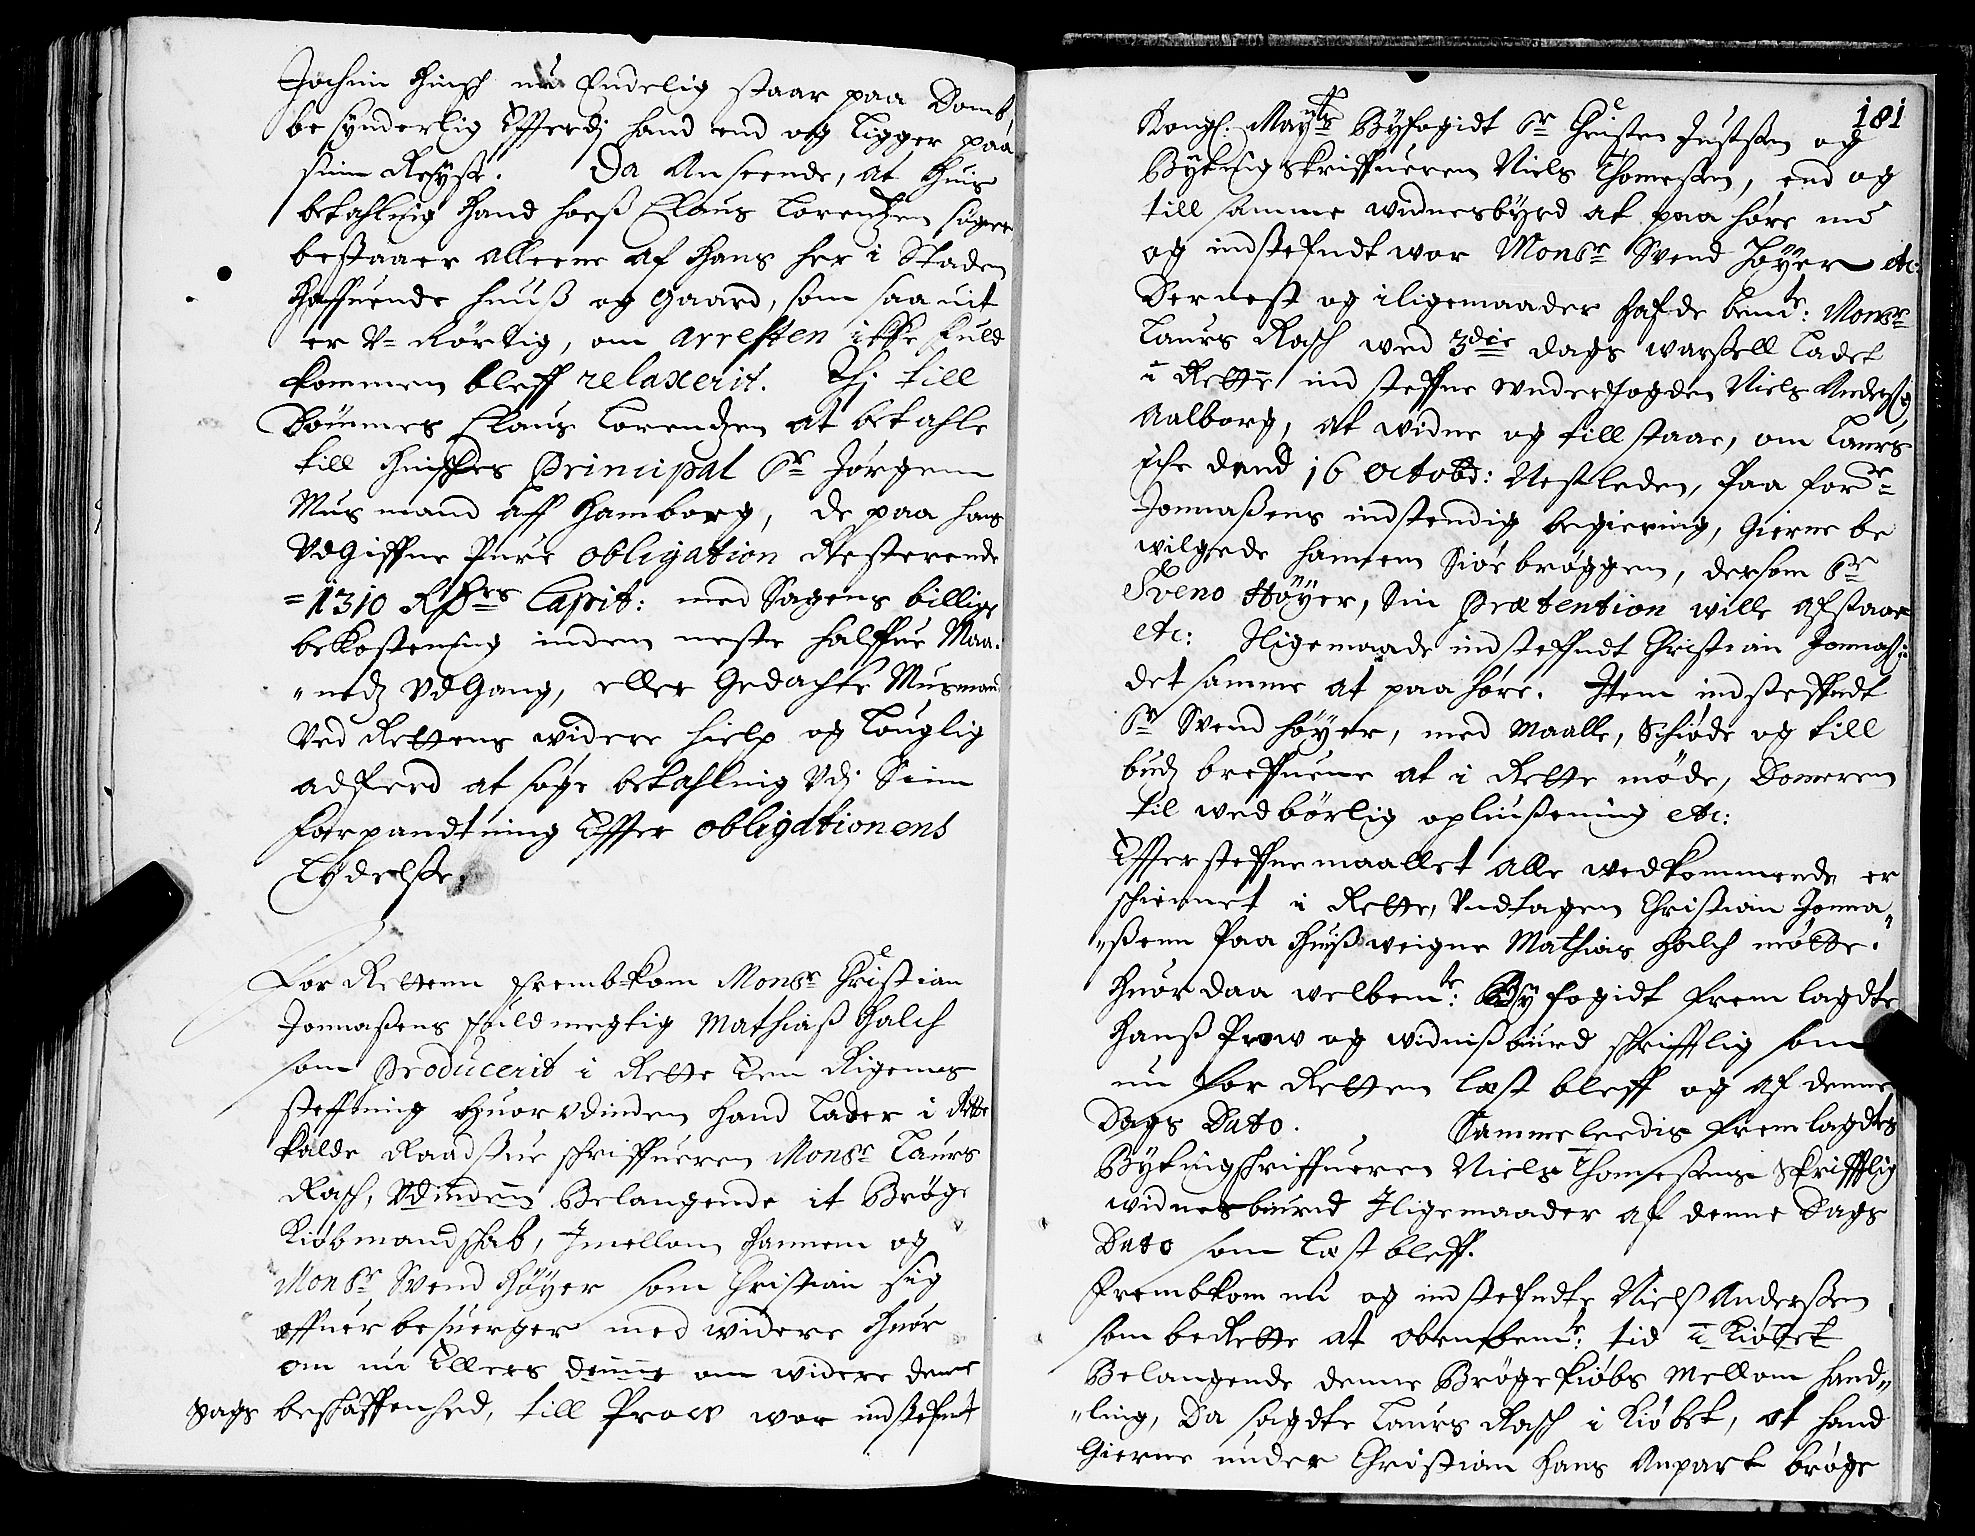 Jochim Hinsch nu Endelig staar paa Domb,
besynderlig Efferdj hand end og ligger paa
sinn Reyse. Da Anseende, at huis
betahling hand hoeß Claus Lorendzen søger
bestaaer alleene af hans her i Staden
haffuende huuß og gaard, som saa uit
er V-Rørlig, om arresten ikke fuld
kommen bleff relaxerit. Thj till
Dømmes Claus Lorendzen at betahle
till Hinsches Principal Sr Jørgen
Musmand aff Hamborg, de paa hans
VdGiffne Pure obligation Resterende
=1310 Rdrs Capit: med Sagens billige
bekostening inden neste halffue Maa-
"nedz VdGang, eller Gedachte Musman
Ved Rettens widere hielp og Louglig
adferd at søge betahling Vdj Sinn
forpandtning Effter obligationens
Lydelse.
For Rettenn frembkom Monsr Christian
Jonnaßens fuldmegtig Mathiaß Halch
som Producerit i Rette Een Rigens
steffning huorvdinden hand lader i Rette
kalde Raadstue schriffueren Monsr Laurs
Rasch, Vdinden Belangende it Brøge
Kiøbmandschab, Imellom hannem og
Monsr Svend Høyer som Christian sig
offuer besuerger med widere huor
om nu Ellers denne om widere denne
Sags beschaffenhed, till Prow war indstefnt
181
Kongl. Maytts Byfogidt Sr Christen Justsen og
Bytingskriffueren Niels Thomeßen, end og
till samme widnesbyrd at paa høre nu
og indstefndt war Monsr Svend Høyer etc:
Dernest og iligemaader hafde bemte: Monsr
Laurs Rasch med 3die dags warßell ladet
i Rette ind steffne underfogden Niels Anderß
Aalborg, at widne og till staae, om Laurs
iche dend 16 octobr: Nestleden, paa forne
Jonnaßens indstendig begiering, Gierne be
wilgede hannem Siøe brøggen, dersom Sr
Sveno Høyer, Sin Prætention wille afstaae
etc: Iligemaade indsteffndt Christian Jonnaß:
det samme at paa høre. Item indsteffndt
Sr Svend Høyer, med Maalle, Schiøde og kiøb
budz breffuene at i Rette møde, Domeren
til wedbørlig opliußening etc:
Effter steffnemaallet alle wedkommende er
schiennet i Rette, Vndtagen Christian Jonna"
"ßenn paa huiß weigne Mathias Halch møtte.
Huor daa welbemte: Byfogidt frem lagdte
hanß Prow og widnißbiurd schrifftlig som
nu for Retten læst bleff og af denne
Dags Dato. Sammeleedis fremlagdes
Bytingschriffueren Niels Thomeßens Skrifftlig
widnesbiurd Iligemaader af denne Dags
Dato som læst bleff.
Frembkom nu og indstefndte Niels Anderßen
som berette at obenbemte: tid i Kiøbet
Belangende denne Brøgekiøbs mellom hand"
"ling, Da sagde Laurs Rasch i Kiøbet, at hand
Gierne under Christian hans Anpart brøge